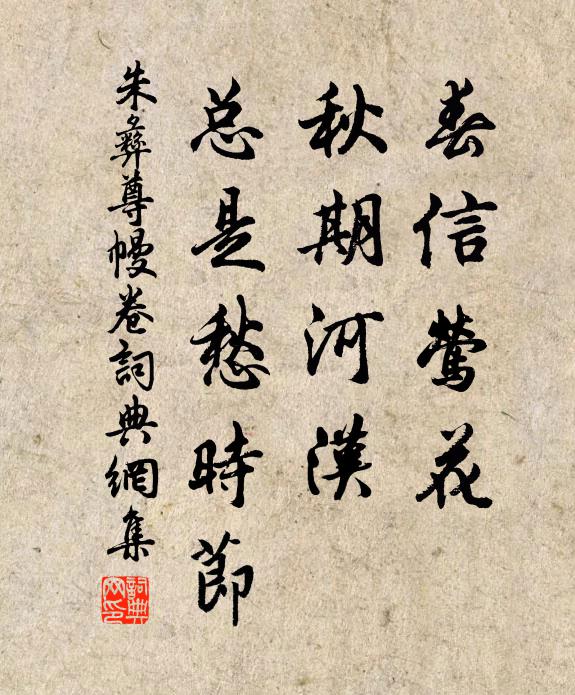 春信鶯花
秋期河漢
总是愁時節
朱彝尊幔卷詞典網集
詞典网印